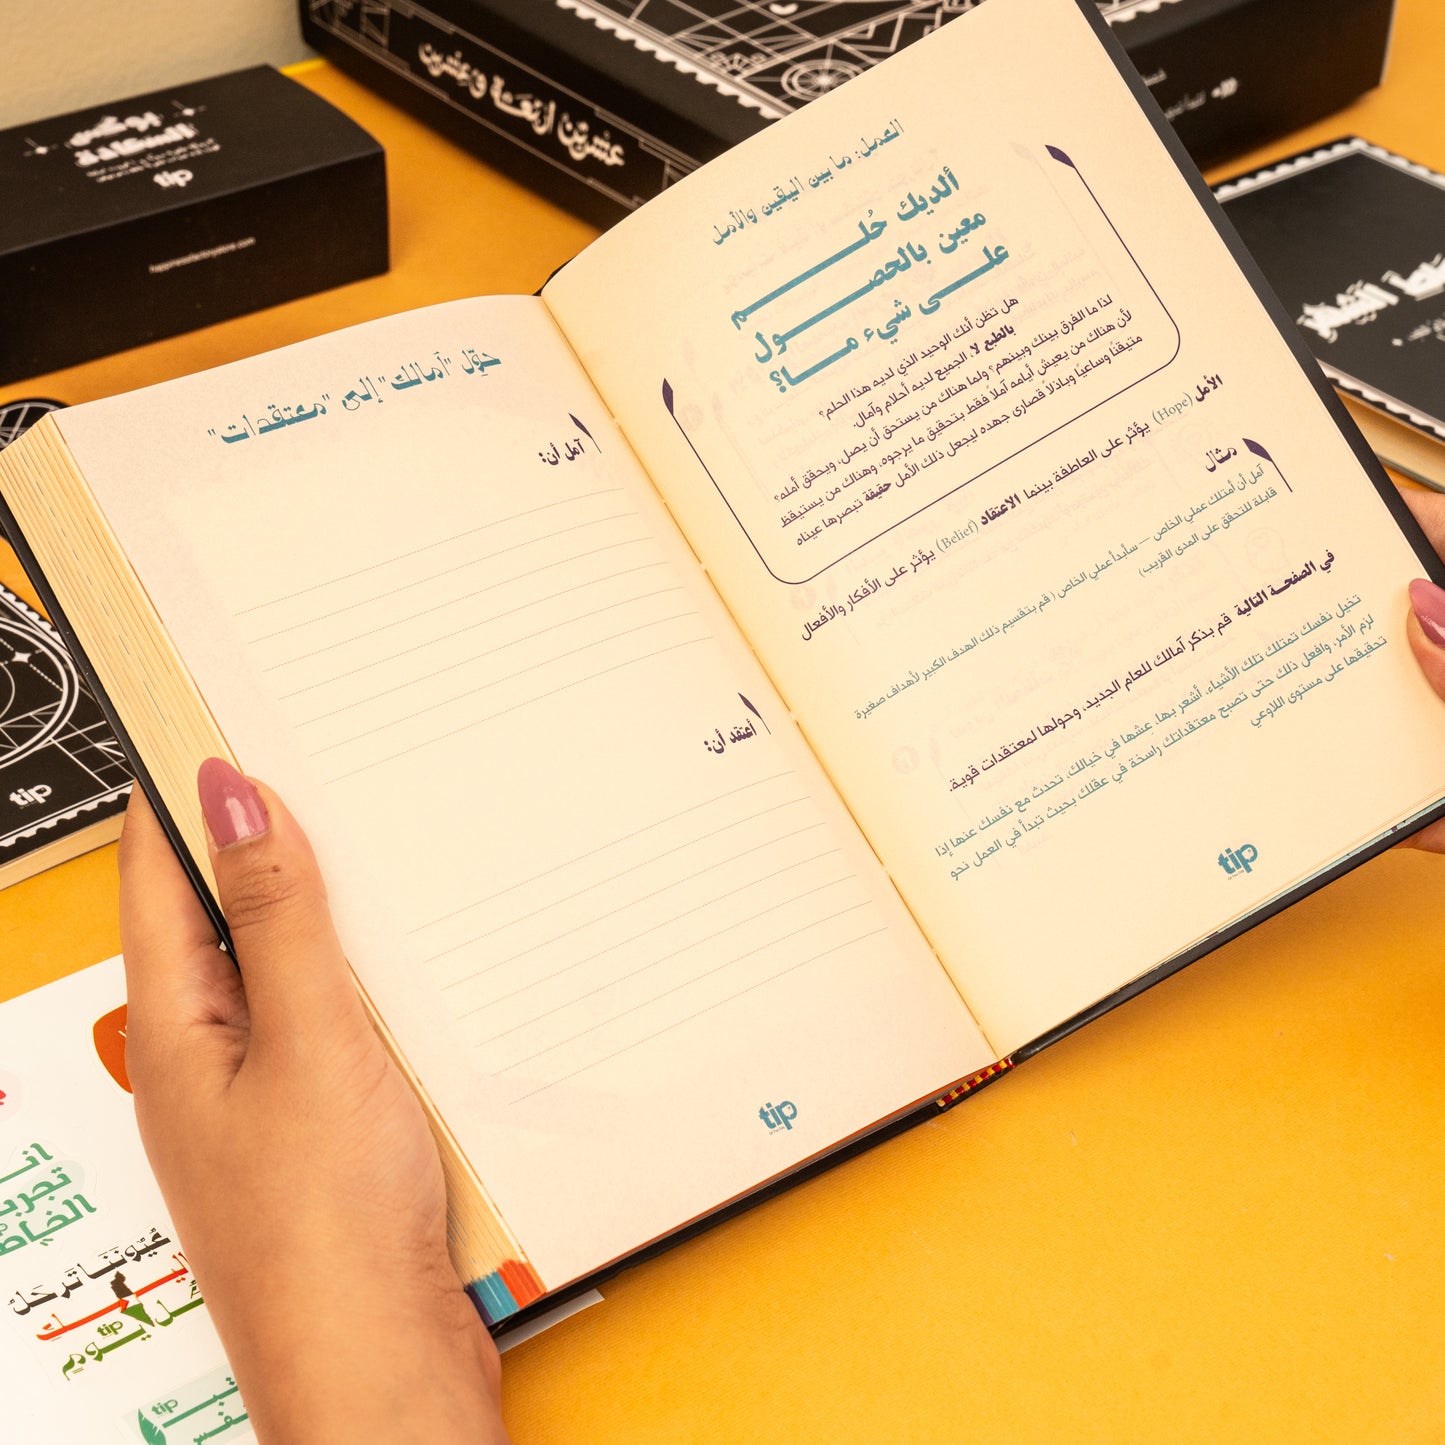 العمل: ما بين اليقين والأمل
ألديك حُلـــم
معين بالحصـــول
علـــى شيء مـــا؟
هل تظن أنك الوحيد الذي لديه هذا الحلم؟
بالطبع لا، الجميع لديه أحلام وآمال.
لذا ما الفرق بينك وبينهم؟ ولما هناك من يستحق أن يصل، ويحقق أمله؟
لأن هناك من يعيش أيامه آملاً فقط بتحقيق ما يرجوه، وهناك من يستيقظ
متيقنًا وساعيًا وباذلاً قصارى جهده ليجعل ذلك الأمل حقيقة تبصرها عيناه
الأمل (Hope) يؤثر على العاطفة بينما الاعتقاد (Belief) يؤثر على الأفكار والأفعال
مثال
آمل أن أمتلك عملي الخاص — سأبدأ عملي الخاص (قم بتقسيم ذلك الهدف الكبير لأهداف صغيرة
قابلة للتحقق على المدى القريب)
في الصفحة التالية قم بذكر آمالك للعام الجديد، وحولها لمعتقدات قوية.
تخيل نفسك تمتلك تلك الأشياء، أشعر بها، عشها في خيالك، تحدث مع نفسك عنها إذا
لزم الأمر، وافعل ذلك حتى تصبح معتقداتك راسخة في عقلك بحيث تبدأ في العمل نحو
تحقيقها على مستوى اللاوعي
tip
حوِّل "آمالك" إلى "معتقدات"
آمل أن:
أعتقد أن:
tip
عشرين أربعة وعشرين
بوكس
السعادة
tip
happinessfactorystore.com
tip
عُيُونَنَا تَرحَلُ
tip
يوم
tip